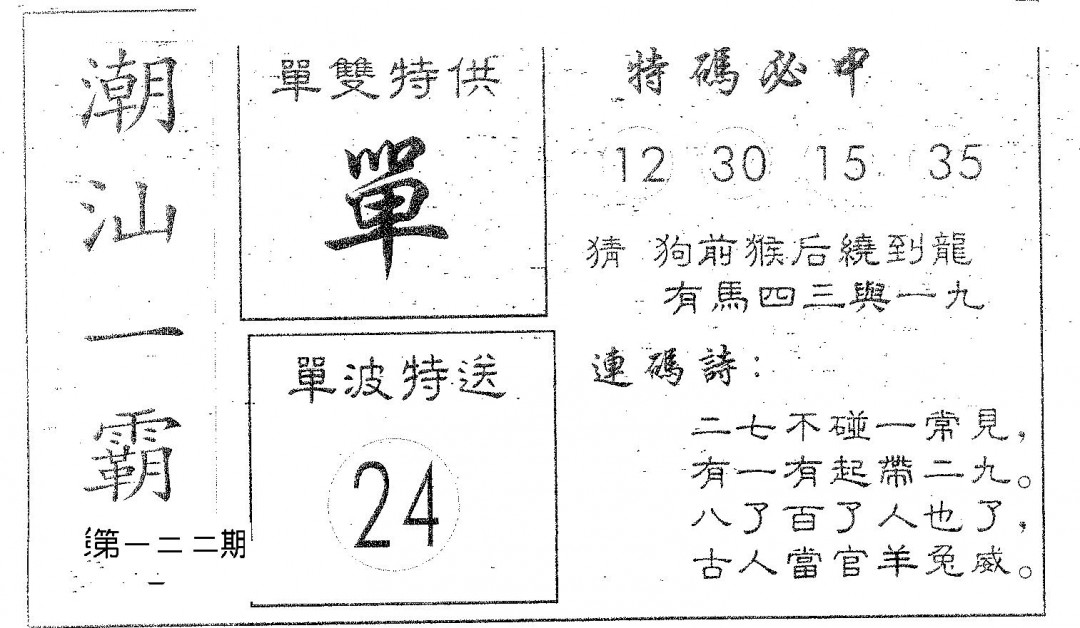 潮汕一霸
第一二二期
單雙特供
單
單波特送
24
特碼必中
12 30 15 35
猜 狗前猴后繞到龍
有馬四三與一九
連碼詩：
二七不碰一常見，
有一有起帶二九。
八了百了人也了，
古人當官羊兔威。